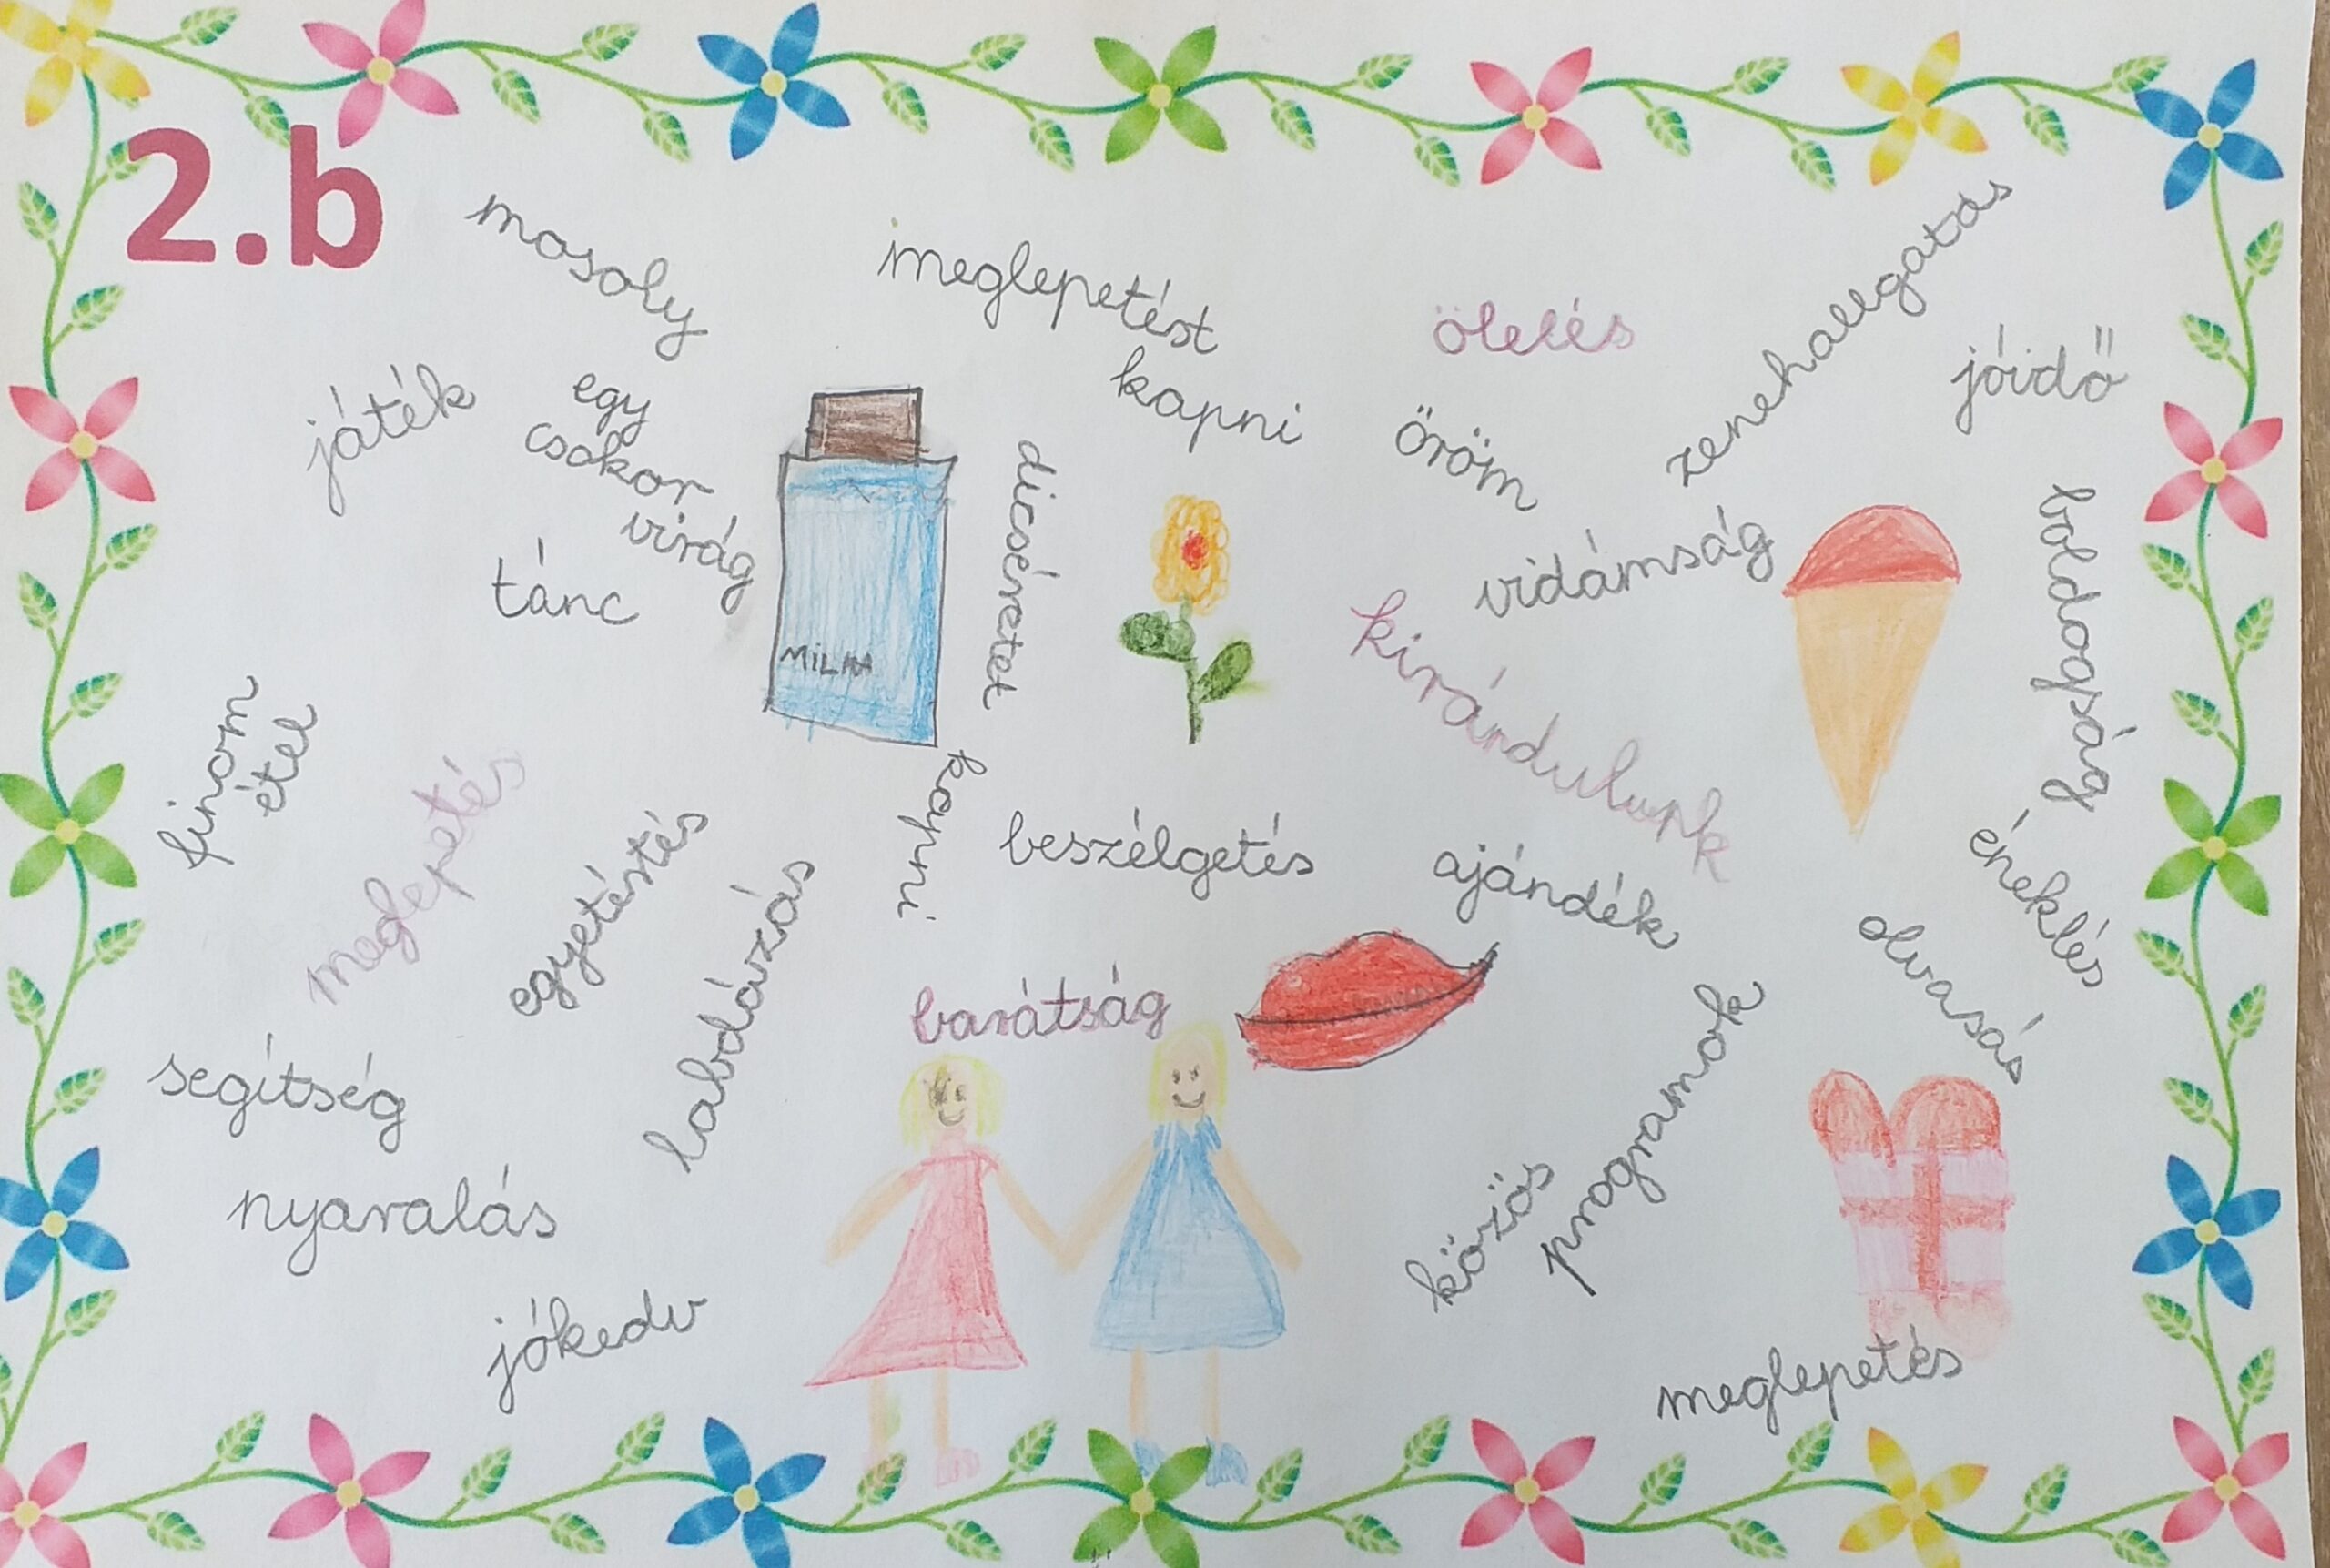 2.b
mosoly
meglepetést
kapni
ölelés
zenehallgatás
jóidő
játék
egy
csokor
virág
tánc
MILKA
dicséretet
kapni
öröm
vidámság
boldogság
kirándulunk
finom
étel
meglepetés
egyetértés
labdázás
beszélgetés
ajándék
éneklés
olvasás
barátság
segítség
nyaralás
jókedv
közös
programok
meglepetés